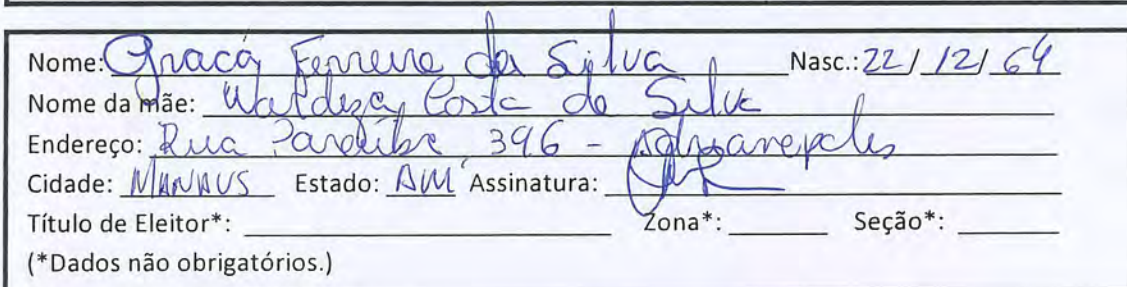 Nome: Graça Ferreira da Silva Nasc.: 22/12/64
Nome da mãe: Costa da Silva
Endereço: Rua Paraíba 396 - Adrianópolis
Cidade: MANAUS Estado: AM Assinatura:
Título de Eleitor*: Zona*: Seção*:
(*Dados não obrigatórios.)